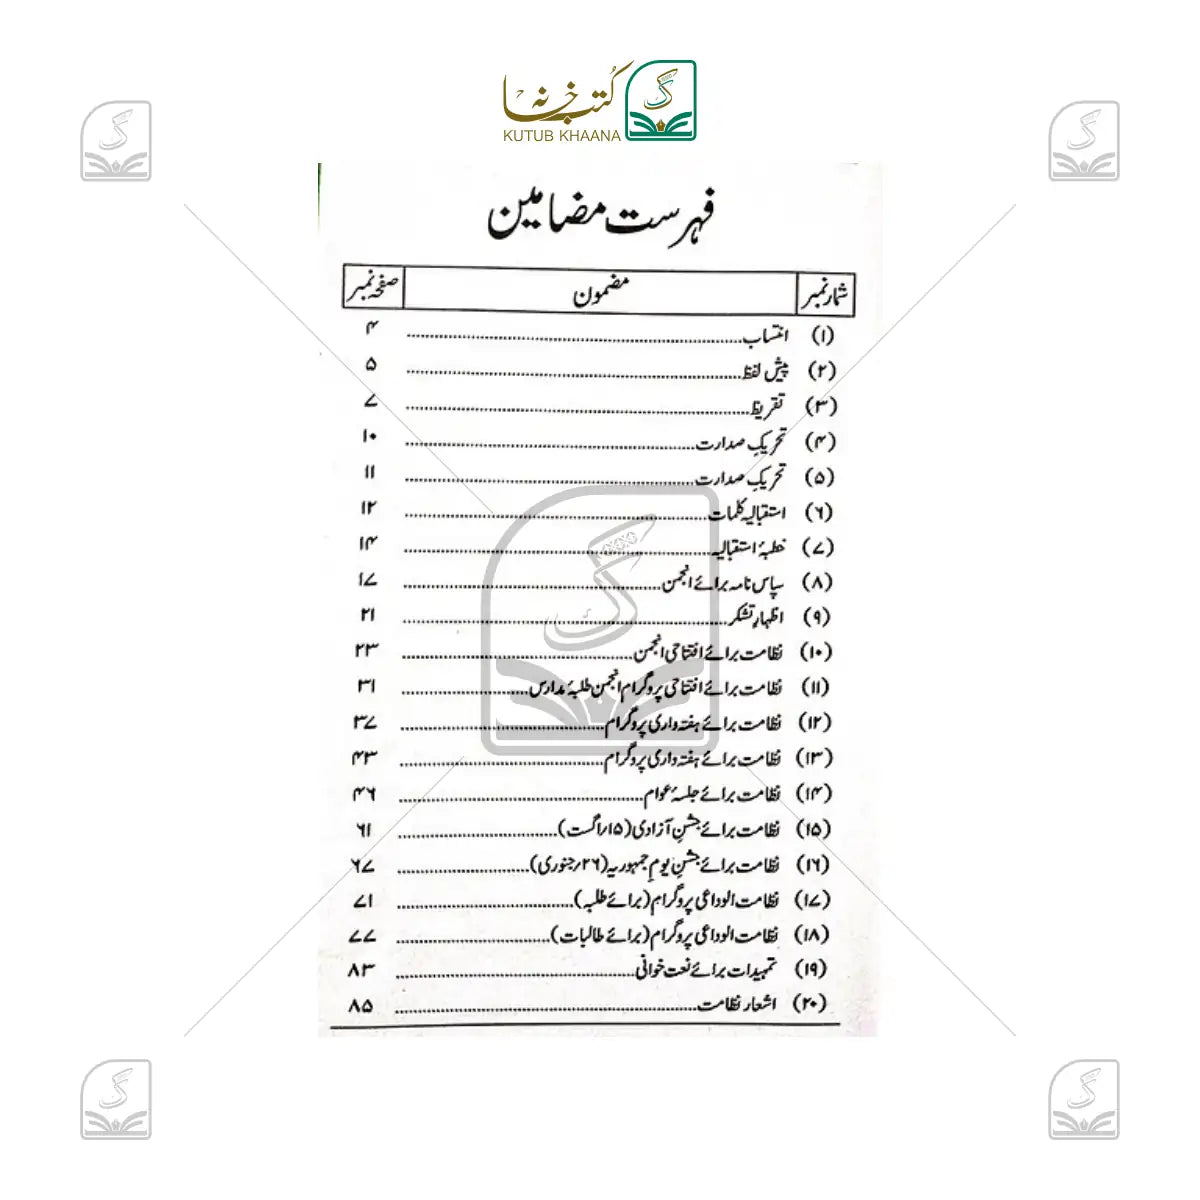 کتب خانہ
KUTUB KHAANA
فہرست مضامین
شمار نمبر مضمون صفحہ نمبر
(۱) انتساب ۴
(۲) پیش لفظ ۵
(۳) تقریظ ۷
(۴) تحریکِ صدارت ۱۰
(۵) تحریکِ صدارت ۱۱
(۶) استقبالیہ کلمات ۱۲
(۷) خطبۂ استقبالیہ ۱۴
(۸) سپاس نامہ برائے انجمن ۱۷
(۹) اظہارِ تشکر ۲۱
(۱۰) نظامت برائے افتتاحی انجمن ۲۳
(۱۱) نظامت برائے افتتاحی پروگرام انجمن طلبۂ مدارس ۳۱
(۱۲) نظامت برائے ہفتہ واری پروگرام ۳۷
(۱۳) نظامت برائے ہفتہ واری پروگرام ۴۳
(۱۴) نظامت برائے جلسۂ عوام ۴۶
(۱۵) نظامت برائے جشنِ آزادی (۱۵/اگست) ۶۱
(۱۶) نظامت برائے جشنِ یومِ جمہوریہ (۲۶/جنوری) ۶۷
(۱۷) نظامت الوداعی پروگرام (برائے طلبہ) ۷۱
(۱۸) نظامت الوداعی پروگرام (برائے طالبات) ۷۷
(۱۹) تمہیدات برائے نعت خوانی ۸۳
(۲۰) اشعار نظامت ۸۵